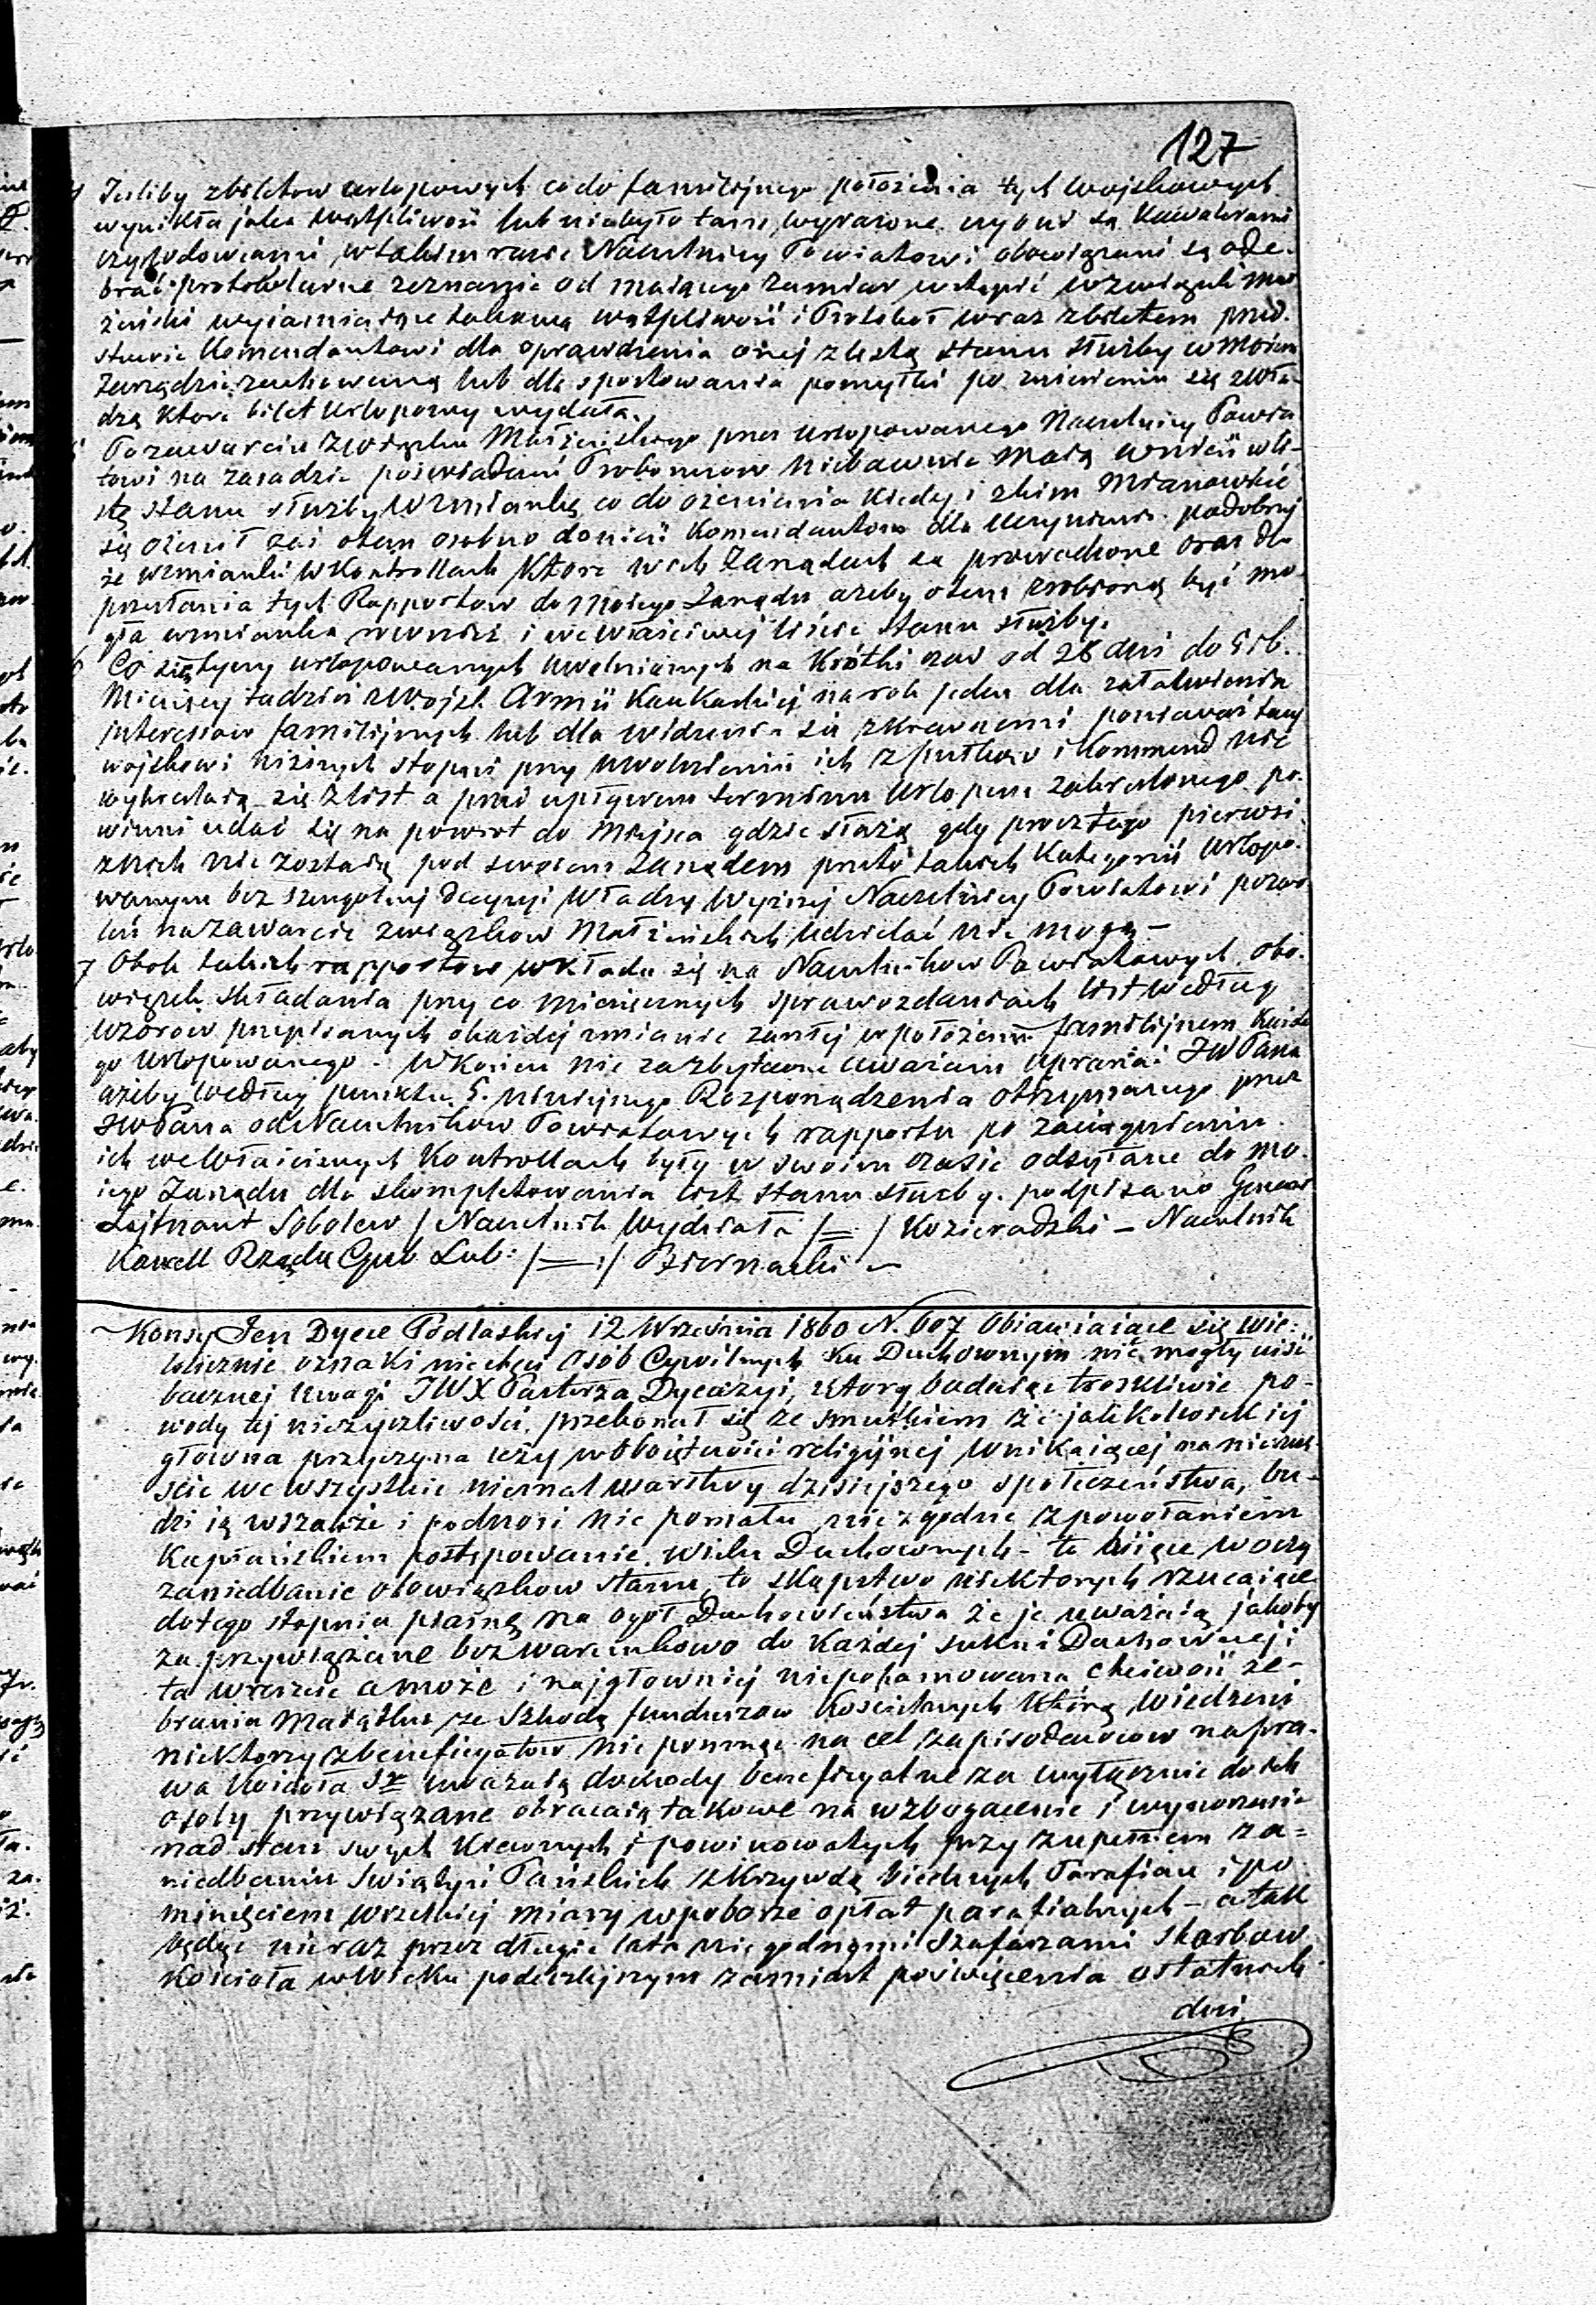 127
4 Jeśliby z biletow urlopowych co do familijnego położenia tych wojskowych
wynikła jaka wątpliwość lub nie było tam wyrażone czy oni są Kawalerami
czy wdowcami, w takim razie Naczelnicy Powiatowi obowiązani są ode-
brać protokularne zeznanie od maiącego zamiar wstąpić w związki mał
żeńskie wyjaśniaiące takową wątpliwość i Protokoł wraz z biletem przed-
stawić Komendantowi dla sprawdzenia onej z listą stanu służby w moim
Zarządzie zachowaną lub dla sprostowania pomyłki po zniesieniu się z wła-
dzą która bilet urlopowy wydała.
Po zawarciu związku Małżeńskiego przez urlopowanego Naczelnicy Powia
towi na zasadzie poświadczeń Proboszczow niebawnie maią wnieść w li-
stę stanu służby wzmiankę co do ożenienia kiedy i z kim mianowicie
się ożenił zaś o tem osobno donieść Komendantom dla uczynienia podobnej
że wzmianki w Kontrollach które w ich Zarządach są prowadzone oraz dla
przesłania tych Rapportow do mojego Zarządu ażeby o tem zrobioną być mo-
gła wzmianka rownież i we właściwej liście stanu służby.
6 Co się tyczy urlopowanych uwolnionych na krótki czas od 28 dni do 6ciu
Miesięcy tudzież z wojsk Armii Kaukazkiej na rok jeden dla załatwienia
interessow familijnych lub dla widzenia się z krewnemi ponieważ tacy
wojskowi niższych stopni przy uwolnieniu ich z pułkow i Kommend nie
wykreślaią się z list a przed upływem terminu urlopem zakreślonego po-
winni udać się na powrot do miejsca gdzie służą gdy prócz tego pierwsi
z nich nie zostaią pod swoiem Zarządem przeto takich kategorii urlopo-
wanym bez szczególnej decyzyi Władzy Wyższej Naczelnicy Powiatowi pozwo
leń na zawarcie związkow Małżeńskich udzielać nie mogą –
7 Obok takich rapportow wkłada się na Naczelnikow Powiatowych obo-
wiązek składania przy co miesięcznych sprawozdaniach list według
wzorów przepisanych o każdej zmianie zaszłej w położeniu familijnem każde
go urlopowanego – W końcu nie za zbyteczne uważam upraszać JWPana
ażeby według punktu 5. niniejszego Rozporządzenia otrzymanego przez
JWPana od Naczelnikow Powiatowych rapporta po zaciągnieniu
ich we właściwych Kontrollach były w swoim czasie odsyłane do mo-
iego Zarządu dla skompletowania list stanu służby. podpisano Generał
Lejtnant Sobolew / Naczelnik Wydziału /=/ Kozieradzki – Naczelnik
Kancell Rządu Gub Lub: /=:/ Biernacki –
Konsy Jen Dyece Podlaskiej 12 Września 1860 N. 607 Obiawiaiące się wie-
lolicznie oznaki niechęci Osób Cywilnych ku Duchownym nie mogły uiść
bacznej uwagi JWX Pasterza Dyecezyi, który badaiąc troskliwie po-
wody tej nieżyczliwości, przekonał się ze smutkiem że jakkolwiek iej
głowna przyczyna leży w oboiętności religijnej wnikaiącej na nieszczę-
ście we wszystkie niemal warstwy dzisiejszego społeczeństwa, bu-
dzi ią wszakże i podnosi nie pomału niezgodne z powołaniem
Kapłańskiem postępowanie wielu Duchownych – to biiące w oczy
zaniedbanie obowiązkow stanu, to skąpstwo niektorych rzucaiące
do tego stopnia plamę na ogół Duchowieństwa że je uważaią jakoby
za przywiązane bezwarunkowo do każdej sukni Duchownej i
ta wreszcie a może i najgłowniej niepohamowana chciwość ze-
brania Maiątku ze szkodą funduszow Kościelnych którą wiedzeni
niektorzy z beneficyatow nie pomnąc na cel zapisodawcow na pra-
wa Kościoła Sgo uważaią dochody beneficyalne za wyłącznie do ich
osoby przywiązane obracaią takowe na wzbogacenie i wynoszenie
nad stan swych Krewnych i powinowatych przy zupełnem za=
niedbaniu Swiątyń Pańskich z krzywdą biednych Parafian i po-
minięciem wszelkiej miary w poborze opłat parafialnych – a tak
będąc nieraz przez długie lata niegodnymi Szafarzami skarbow
Kościoła w wieku podeszłym zamiast poświęcenia ostatnich
dni